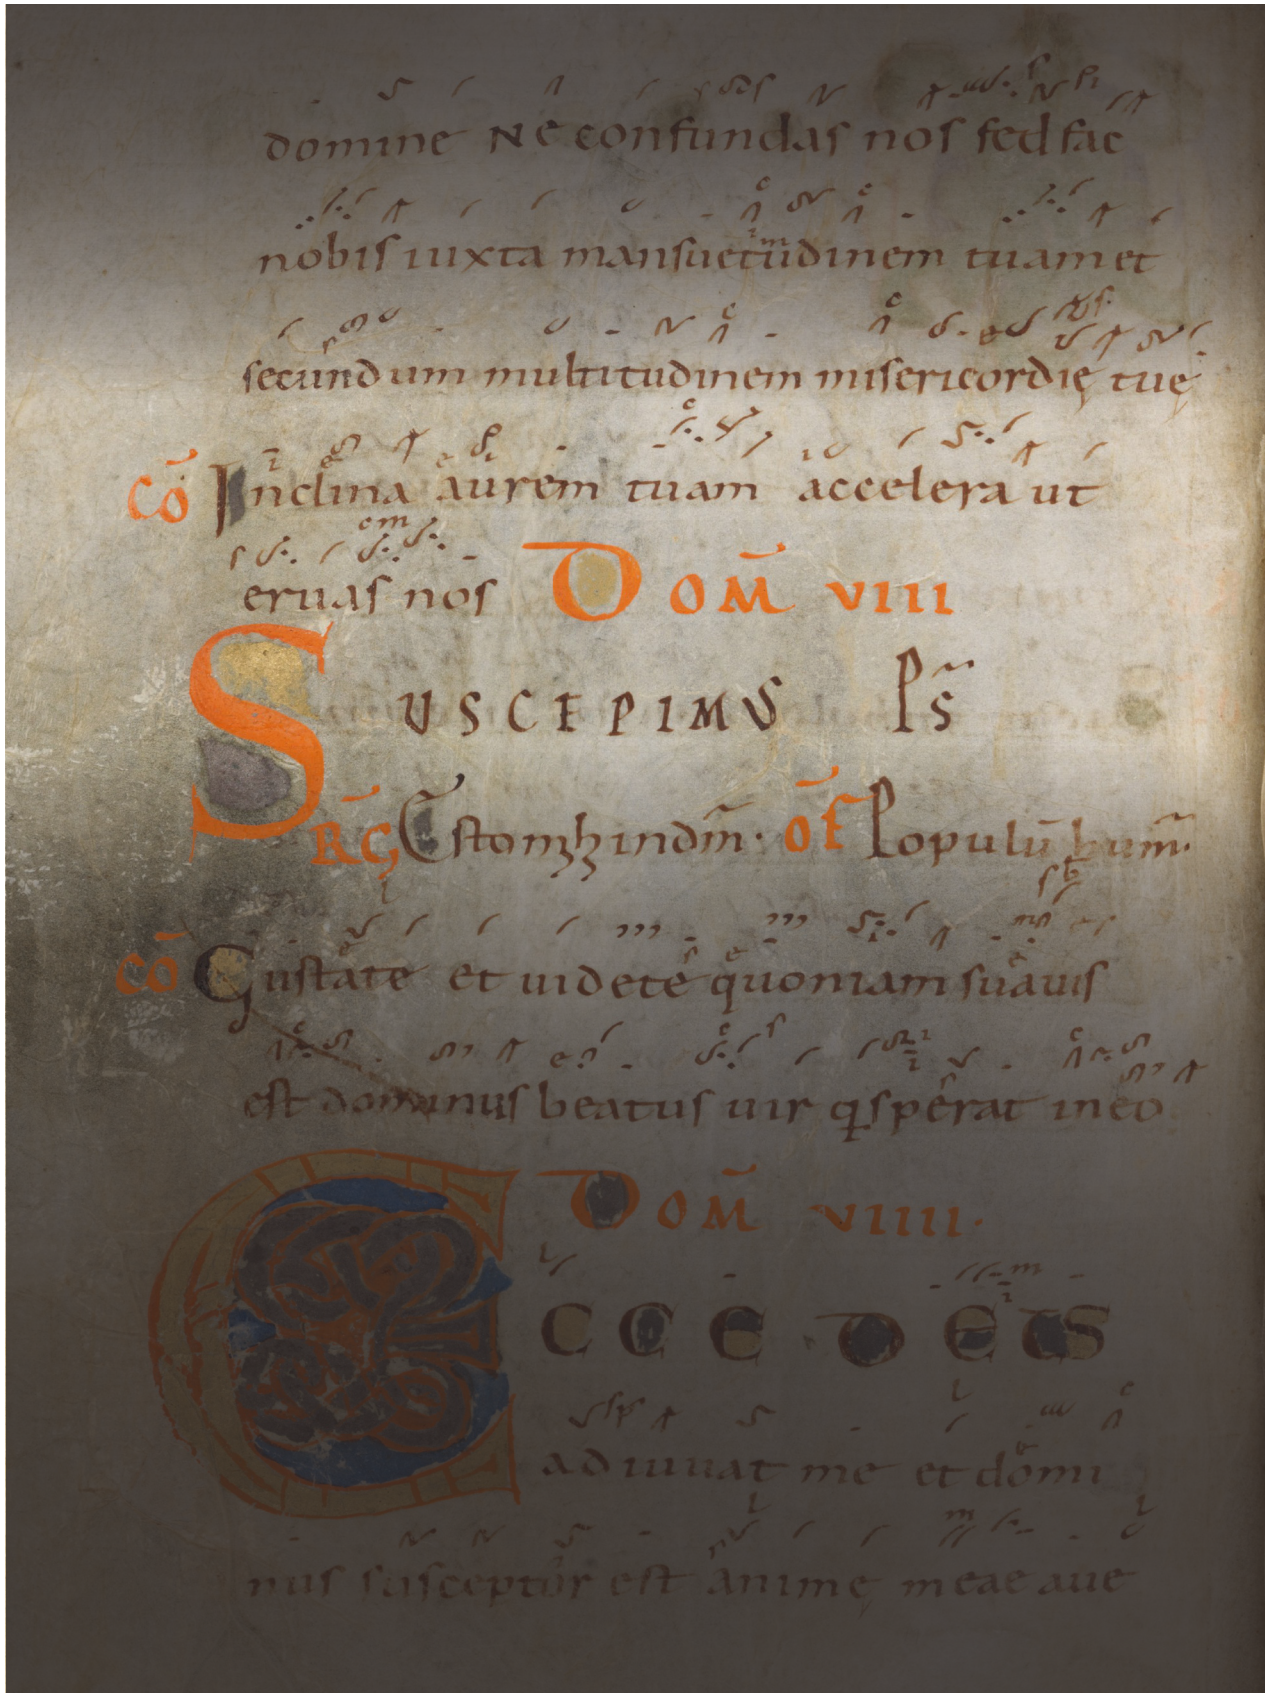 domine Ne confundas nos sed fac
nobis iuxta mansuetudinem tuam et
secundum multitudinem misericordię tuę
CŌ Inclina aurem tuam accelera ut
eruas nos DOM̄ VIII
SUSCEPIMUS Ps̄
R̄G Esto mꝫħ in dm̄· OF̄ Populū hum̄·
CŌ Gustate et uidete quoniam suauis
est dominus beatus uir qͥ sperat in eo
DOM̄ VIIII·
ECCE DEUS
adiuuat me et domi
nus susceptor est animę meae aue